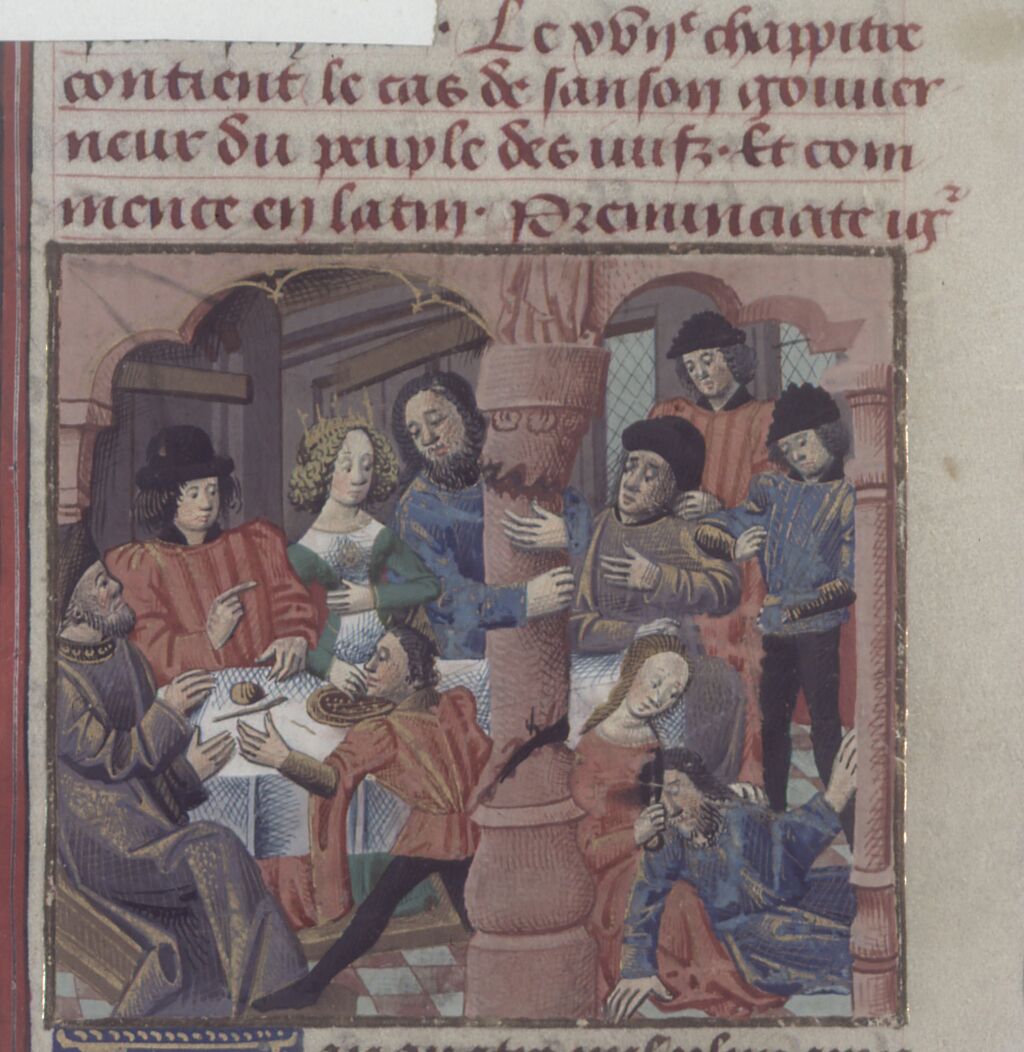 Le xvii^e chappitre
contient le cas de sanson gouver
neur du peuple des iuifz. Et com
mence en latin. Prenunciate